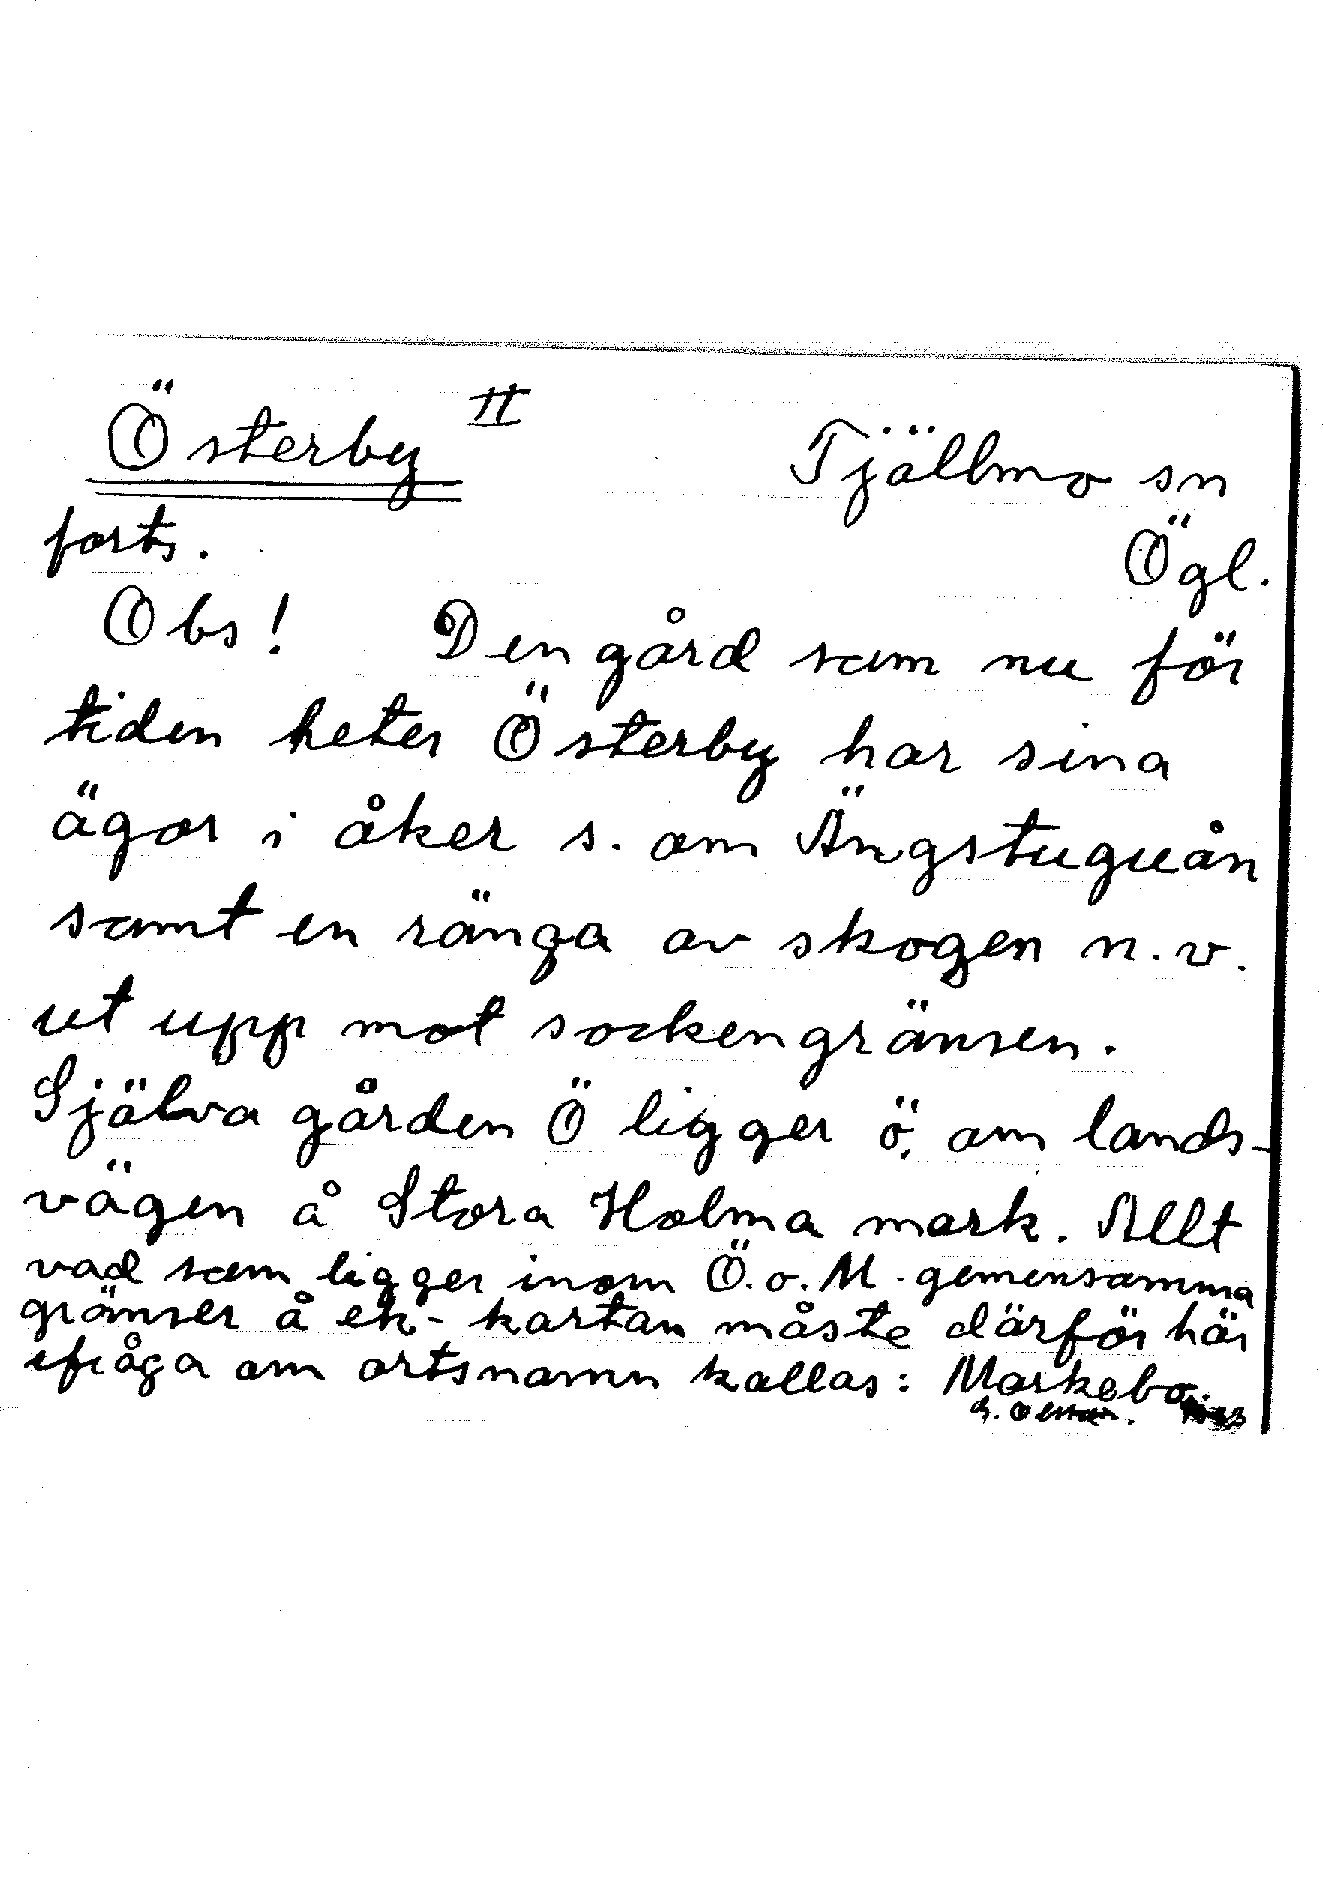 Österby II Tjällmo sn
forts. Ögl.
Obs! Den gård som nu för
tiden heter Österby har sina
ägor i åker s. om Ängstuguån
samt en ränga av skogen n.v.
ut upp mot sockengränsen.
Själva gården Ö ligger ö. om lands-
vägen å Stora Holma mark. Allt
vad som ligger inom Ö. o. M. gemensamma
gränser å ek-kartan måste därför här
ifråga om ortsnamn kallas: Markebo.